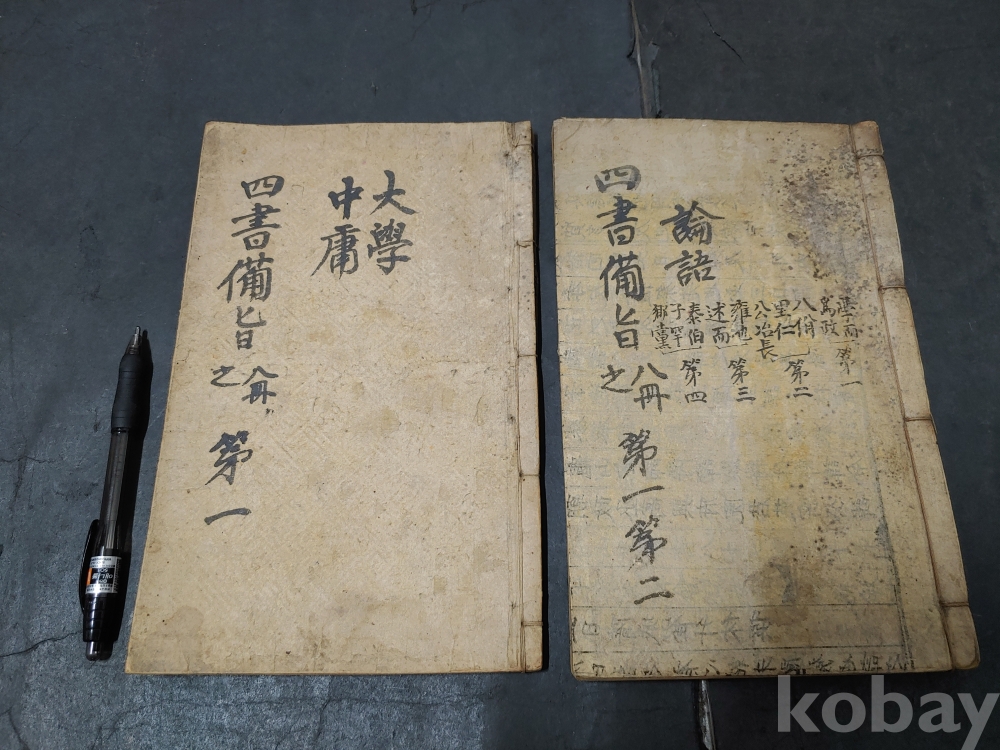 大學
中庸
四書備旨
八冊
之
第一
學而
爲政
第一
八佾
里仁
第二
公冶長
雍也
第三
述而
泰伯
子罕
鄕黨
第四
論語
四書備旨
八冊
之
第一第二
kobay